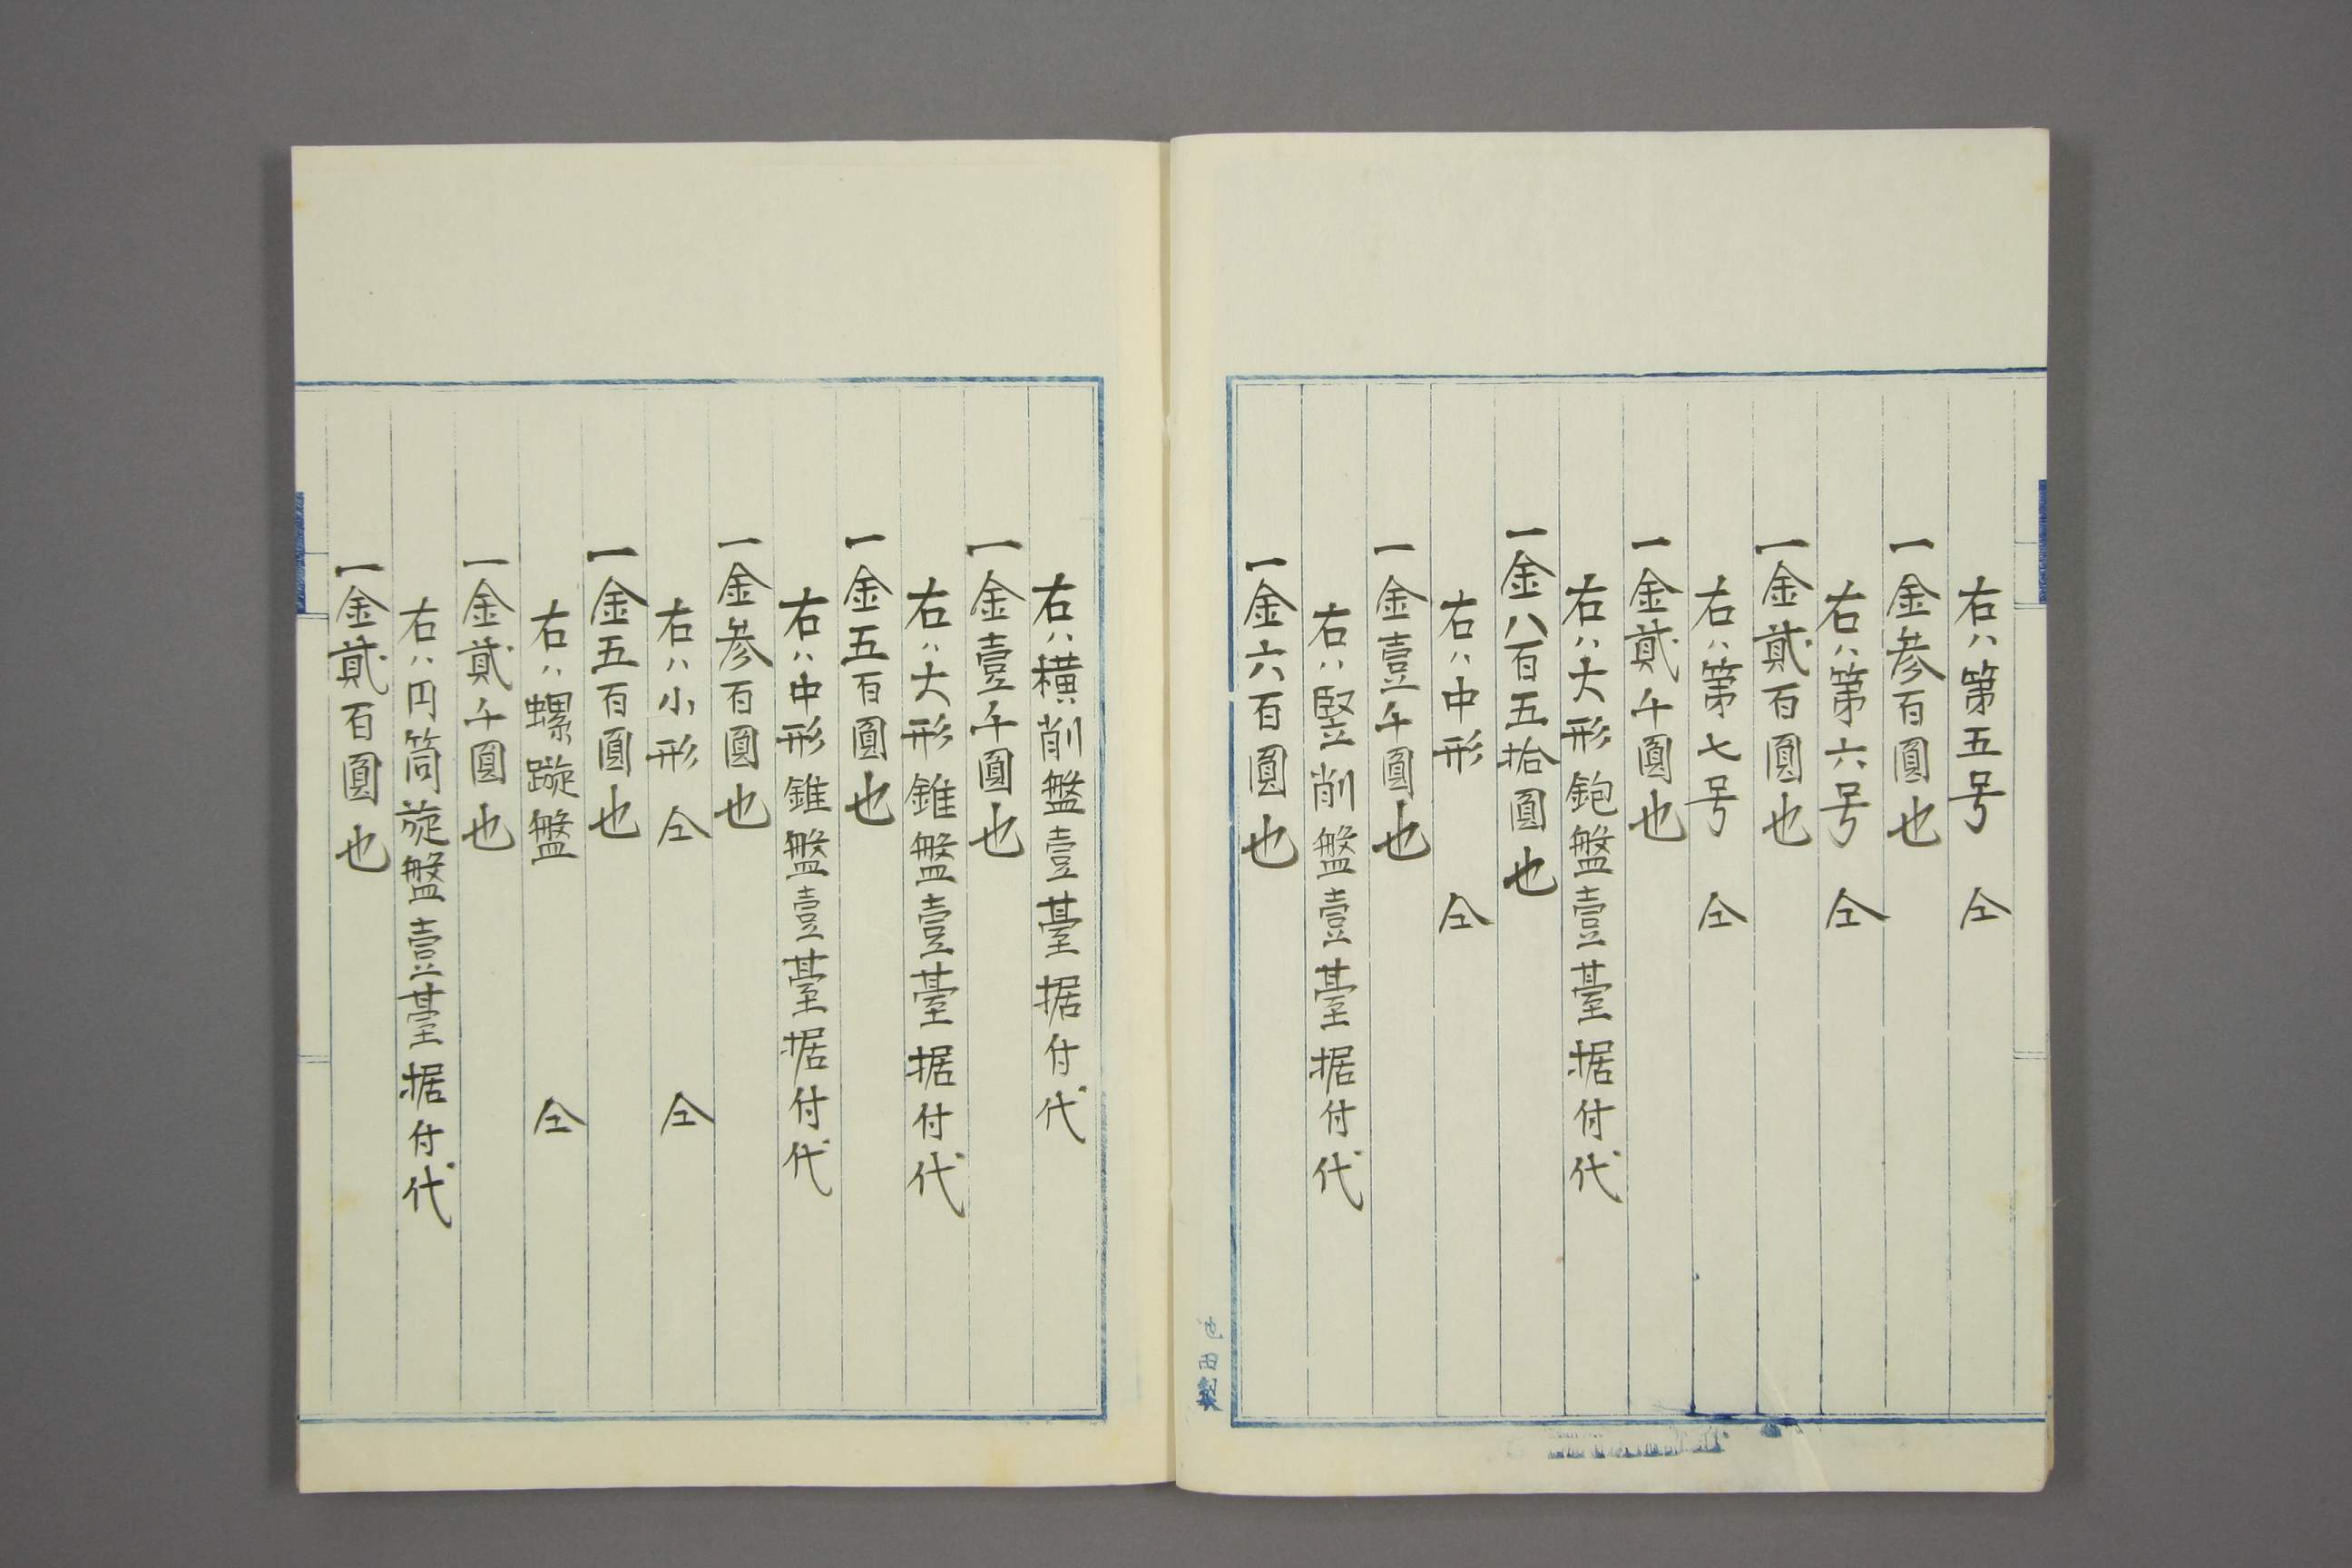 右ハ第五号 仝
一金参百圓也
右ハ第六号 仝
一金貮百圓也
右ハ第七号 仝
一金貮千圓也
右ハ大形鉋盤壹臺据付代
一金八百五拾圓也
右ハ中形 仝
一金壹千圓也
右ハ竪削盤壹臺据付代
一金六百圓也
右ハ横削盤壹臺据付代
一金壹千圓也
右ハ大形錐盤壹臺据付代
一金五百圓也
右ハ中形錐盤壹臺据付代
一金参百圓也
右ハ小形仝 仝
一金五百圓也
右ハ螺蹤盤 仝
一金貮千圓也
右ハ円筒旋盤壹臺据付代
一金貮百圓也